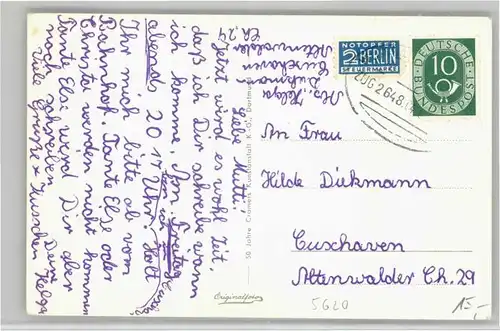 Abs.: Helga
Dickmann
Cuxhaven
Altenwalder
Ch. 29
Liebe Mutti!
Jetzt wird es wohl Zeit,
daß ich Dir schreibe wann
ich komme. Am Freitag
abends 20 17 Uhr. Holt
Ihr mich bitte ab vom
Bahnhof. Tante Else oder
Christa werden nicht kommen.
Tante Else werd Dir aber
noch schreiben.
Viele Grüße + Küsschen
Deine
Helga
50 Jahre Cramers Kunstanstalt K.-G., Dortmund
Originalfoto
NOTOPFER
2 BERLIN
STEUERMARKE
DEUTSCHE
BUNDESPOST
10
ZUG 2648
An Frau
Hilde Dickmann
Cuxhaven
Altenwalder Ch. 29
5620
15,-